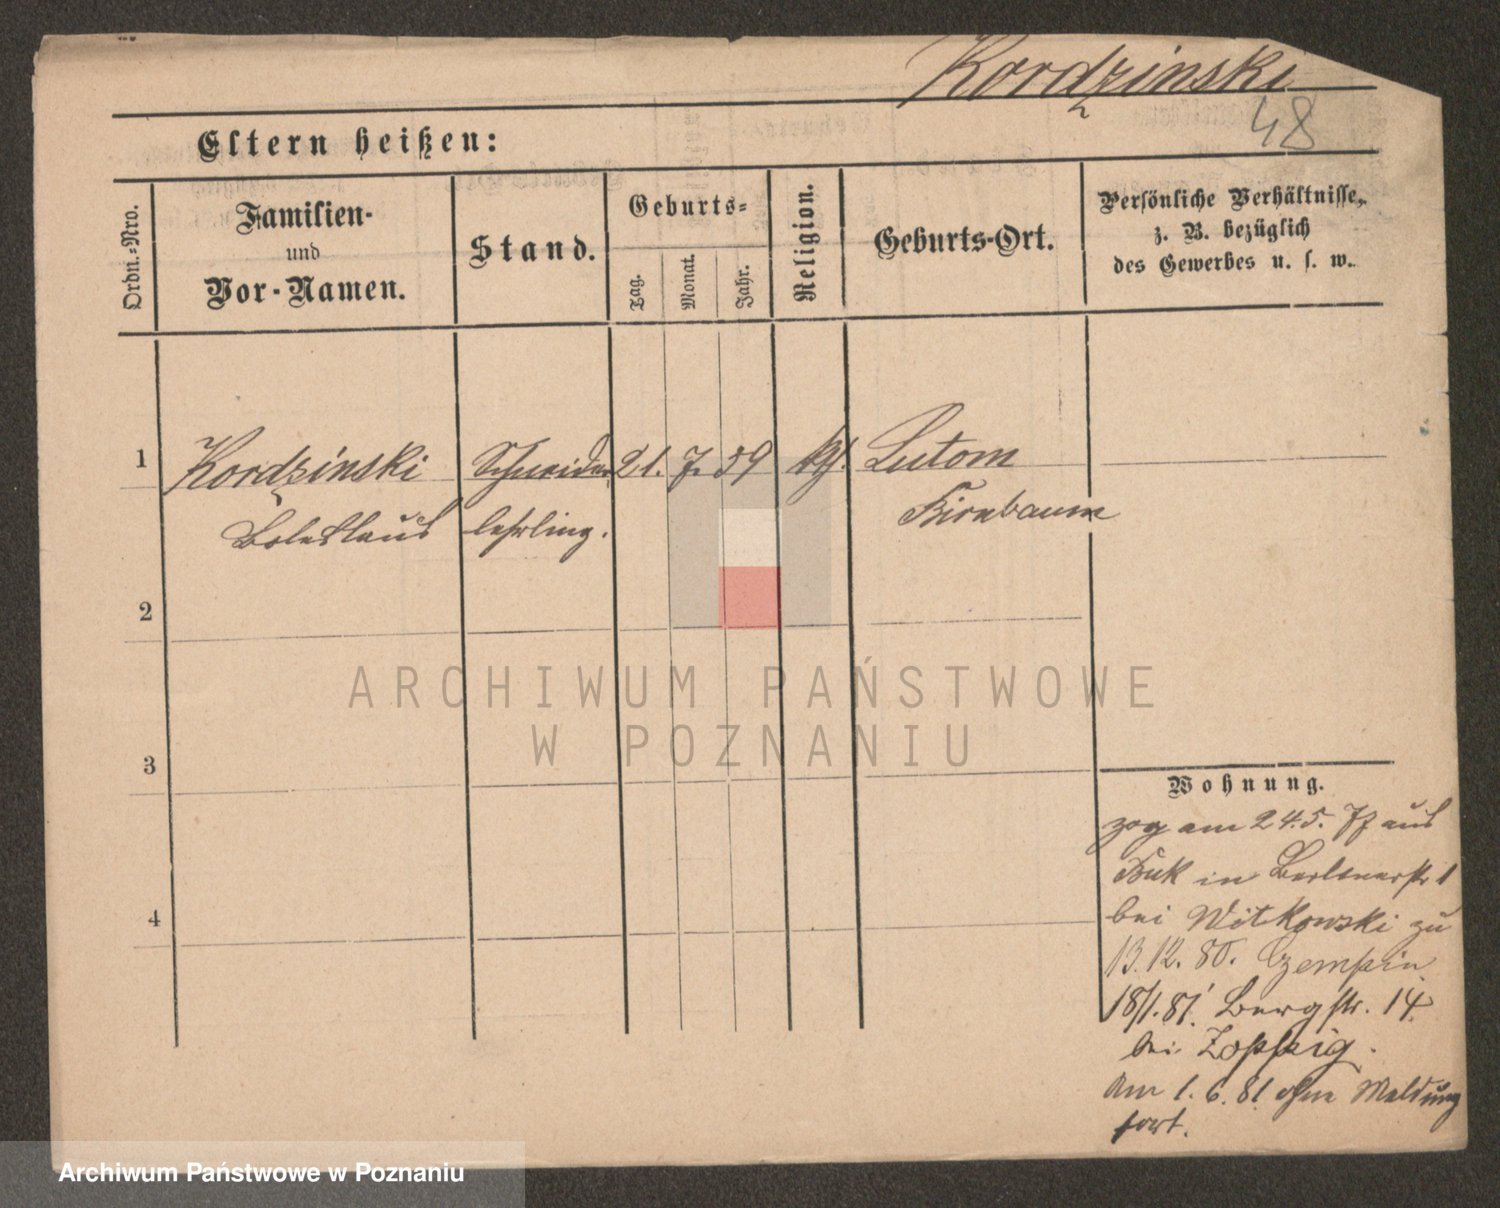 Kordzinski
48
Eltern heißen:
Ordn.-Nro.
Familien-
und
Vor-Namen.
Stand.
Geburts-
Tag.
Monat.
Jahr.
Religion.
Geburts-Ort.
Persönliche Verhältnisse,
z. B. bezüglich
des Gewerbes u. s. w.
1
Kordzinski Schneider 21. 7. 59 kth. Lutom
Boleslaus lehrling. Birnbaum
2
3
4
Wohnung.
zog am 24.5. 77 aus
Buk in Berlinerstr 1
bei Witkowski zu
13.12. 80. Czempin
18/1. 81. Bergstr. 14.
bei Zopfzig.
Am 1. 6. 81 ohne Meldung
fort.
ARCHIWUM PAŃSTWOWE
W POZNANIU
Archiwum Państwowe w Poznaniu